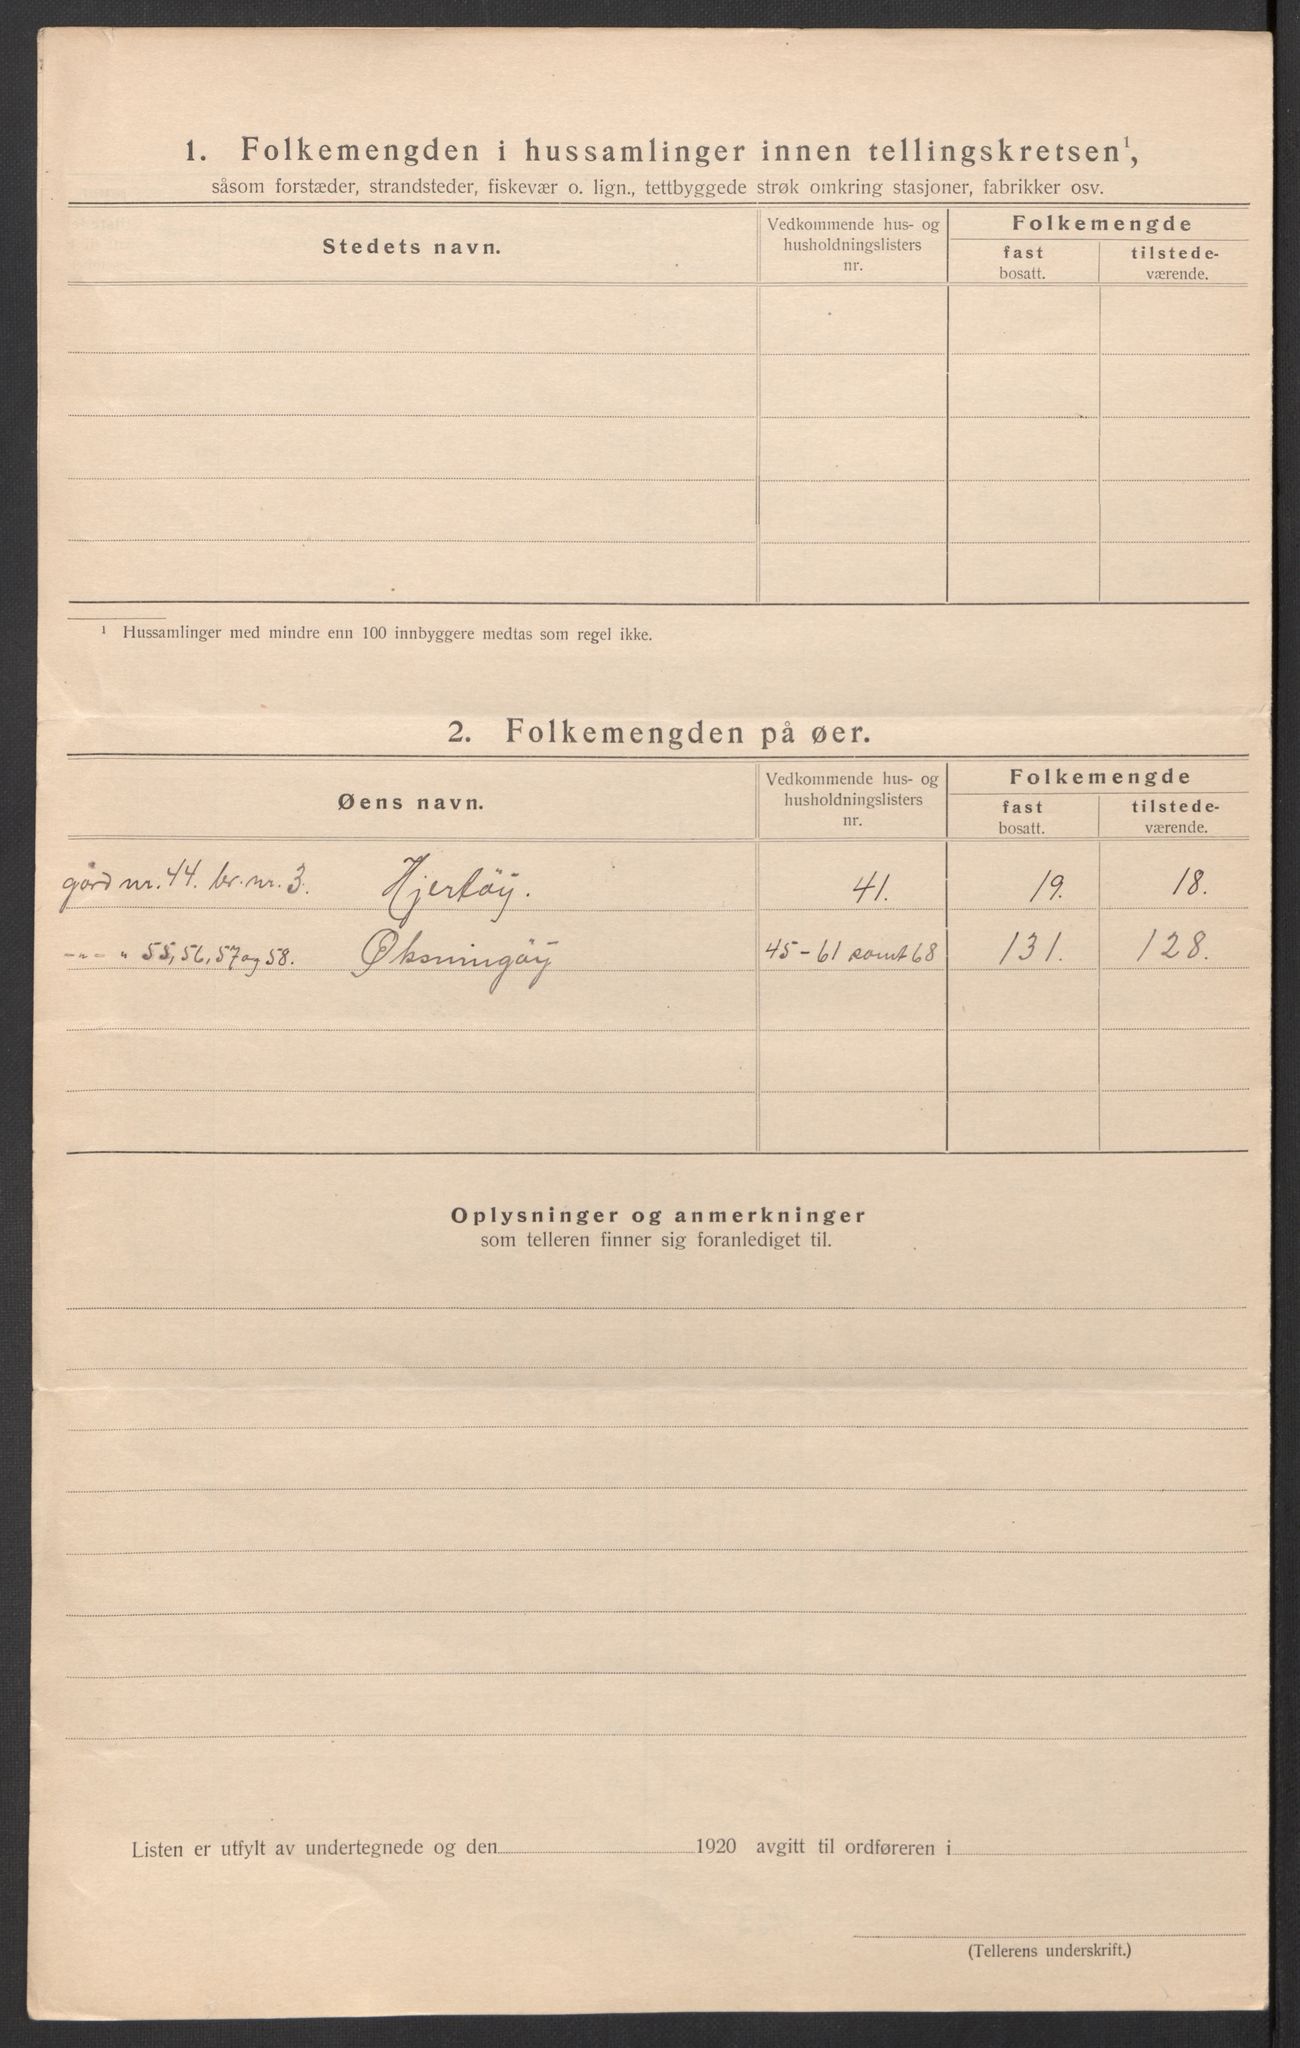 1. Folkemengden i hussamlinger innen tellingskretsen¹,
såsom forstæder, strandsteder, fiskevær o. lign., tettbyggede strøk omkring stasjoner, fabrikker osv.
Stedets navn.
Vedkommende hus- og
husholdningslisters
nr.
Folkemengde
fast
bosatt.
tilstede-
værende.
¹ Hussamlinger med mindre enn 100 innbyggere medtas som regel ikke.
2. Folkemengden på øer.
Øens navn.
Vedkommende hus- og
husholdningslisters
nr.
Folkemengde
fast
bosatt.
tilstede-
værende.
gård nr. 44. br. nr. 3. Hjertøy. 41. 19. 18.
-"- " 55, 56, 57 og 58. Øksningøy 45-61 samt 68 131. 128.
Oplysninger og anmerkninger
som telleren finner sig foranlediget til.
Listen er utfylt av undertegnede og den 1920 avgitt til ordføreren i
(Tellerens underskrift.)